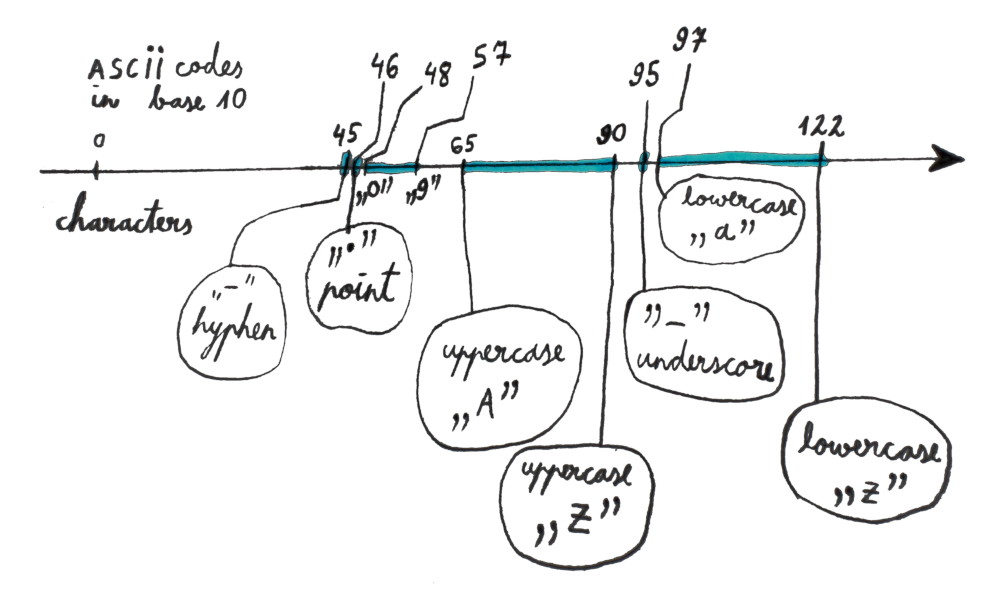 ASCII codes
in base 10
0
45
46
48
57
65
90
95
97
122
characters
„0”
„9”
„-”
hyphen
„.”
point
uppercase
„A”
uppercase
„Z”
„_”
underscore
lowercase
„a”
lowercase
„z”